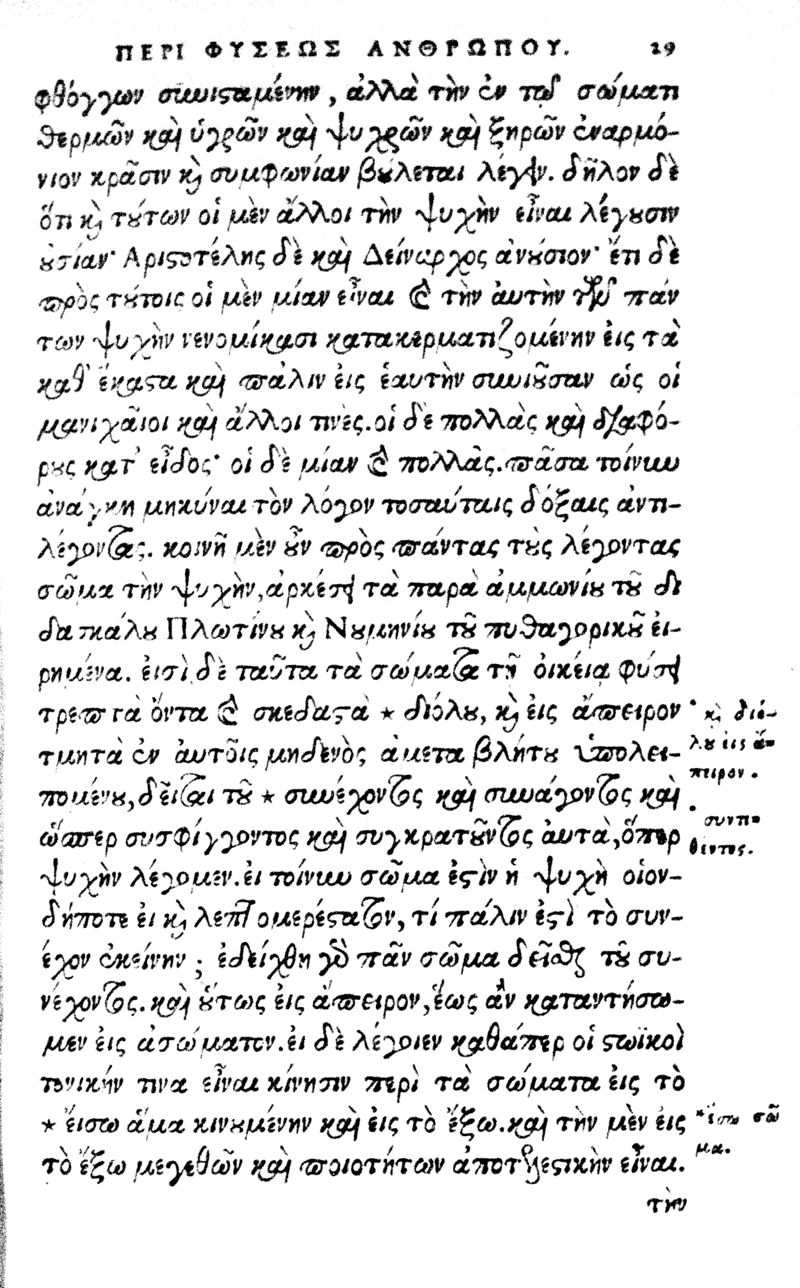 ΠΕΡΙ ΦΥΣΕΩΣ ΑΝΘΡΩΠΟΥ. 29
φθόγγων συνισταμένην, ἀλλὰ τὴν ἐν τῷ σώματι
θερμῶν καὶ ὑγρῶν καὶ ψυχρῶν καὶ ξηρῶν ἐναρμό-
νιον κρᾶσιν καὶ συμφωνίαν βούλεται λέγειν. δῆλον δὲ
ὅτι καὶ τούτων οἱ μὲν ἄλλοι τὴν ψυχὴν εἶναι λέγουσιν
οὐσίαν· Αριστοτέλης δὲ καὶ Δείναρχος ἀνούσιον· ἔτι δὲ
πρὸς τούτοις οἱ μὲν μίαν εἶναι καὶ τὴν ἀυτὴν τῶν πάν
των ψυχὴν νενομίκασι κατακερματιζομένην εἰς τὰ
καθ' ἕκαστα καὶ πάλιν εἰς ἑαυτὴν συνιοῦσαν ὡς οἱ
μανιχᾶιοι καὶ ἄλλοι τινὲς. οἱ δὲ πολλὰς καὶ διαφό-
ρους κατ' εἶδος· οἱ δὲ μίαν καὶ πολλὰς. πᾶσα τοίνυν
ἀνάγκη μηκύναι τὸν λόγον τοσαύταις δόξαις ἀντι-
λέγοντας. κοινῇ μὲν οὖν πρὸς πάντας τοὺς λέγοντας
σῶμα τὴν ψυχὴν, ἀρκέσει τὰ παρὰ ἀμμωνίου τοῦ δι
δασκάλου Πλωτίνου καὶ Νουμηνίου τοῦ πυθαγορικοῦ ἐι-
ρημένα. ἐισὶ δὲ ταῦτα τὰ σώματα τῇ οἰκέια φύσει
τρεπτὰ ὄντα καὶ σκεδαστὰ * διόλου, καὶ εἰς ἄπειρον
τμητὰ ἐν ἀυτοῖς μηδενὸς ἀμεταβλήτου ὑπολει-
πομένου, δεῖται τοῦ * συνέχοντος καὶ συνάγοντος καὶ
ὥσπερ συσφίγγοντος καὶ συγκρατοῦντος ἀυτὰ, ὅπερ
ψυχὴν λέγομεν. ἐι τοίνυν σῶμα ἐστὶν ἡ ψυχὴ οἱον-
δήποτε ἐι καὶ λεπτομερέστατον, τί πάλιν ἐστὶ τὸ συν-
έχον ἐκείνην; ἐδείχθη γὰρ πᾶν σῶμα δεῖσθαι τοῦ συ-
νέχοντος. καὶ οὕτως εἰς ἄπειρον, ἕως ἂν καταντήσω-
μεν ἐις ἀσώματον. ἐι δὲ λέγοιεν καθάπερ οἱ στωϊκοὶ
τονικήν τινα εἶναι κίνησιν περὶ τὰ σώματα εἰς τὸ
* ἔισω ἅμα κινουμένην καὶ εἰς τὸ ἔξω. καὶ τὴν μὲν εἰς
τὸ ἔξω μεγεθῶν καὶ ποιοτήτων ἀποτελεστικὴν εἶναι.
τὴν
* καὶ διό-
λου εἰς ἄ-
πειρον.
συντι-
θέντος.
* ἔισω σῶ
μα.